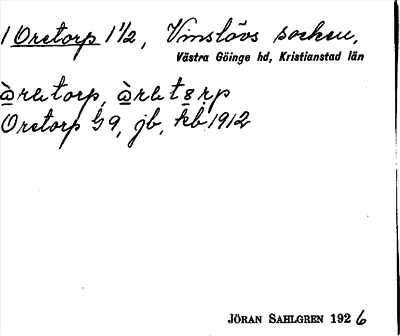 1 Oretorp 1 1/2, Vinslövs socken,
Västra Göinge hd, Kristianstad län
òretorp, òretɞrp
Oretorp G 9, jb, kb 1912
JÖRAN SAHLGREN 1926